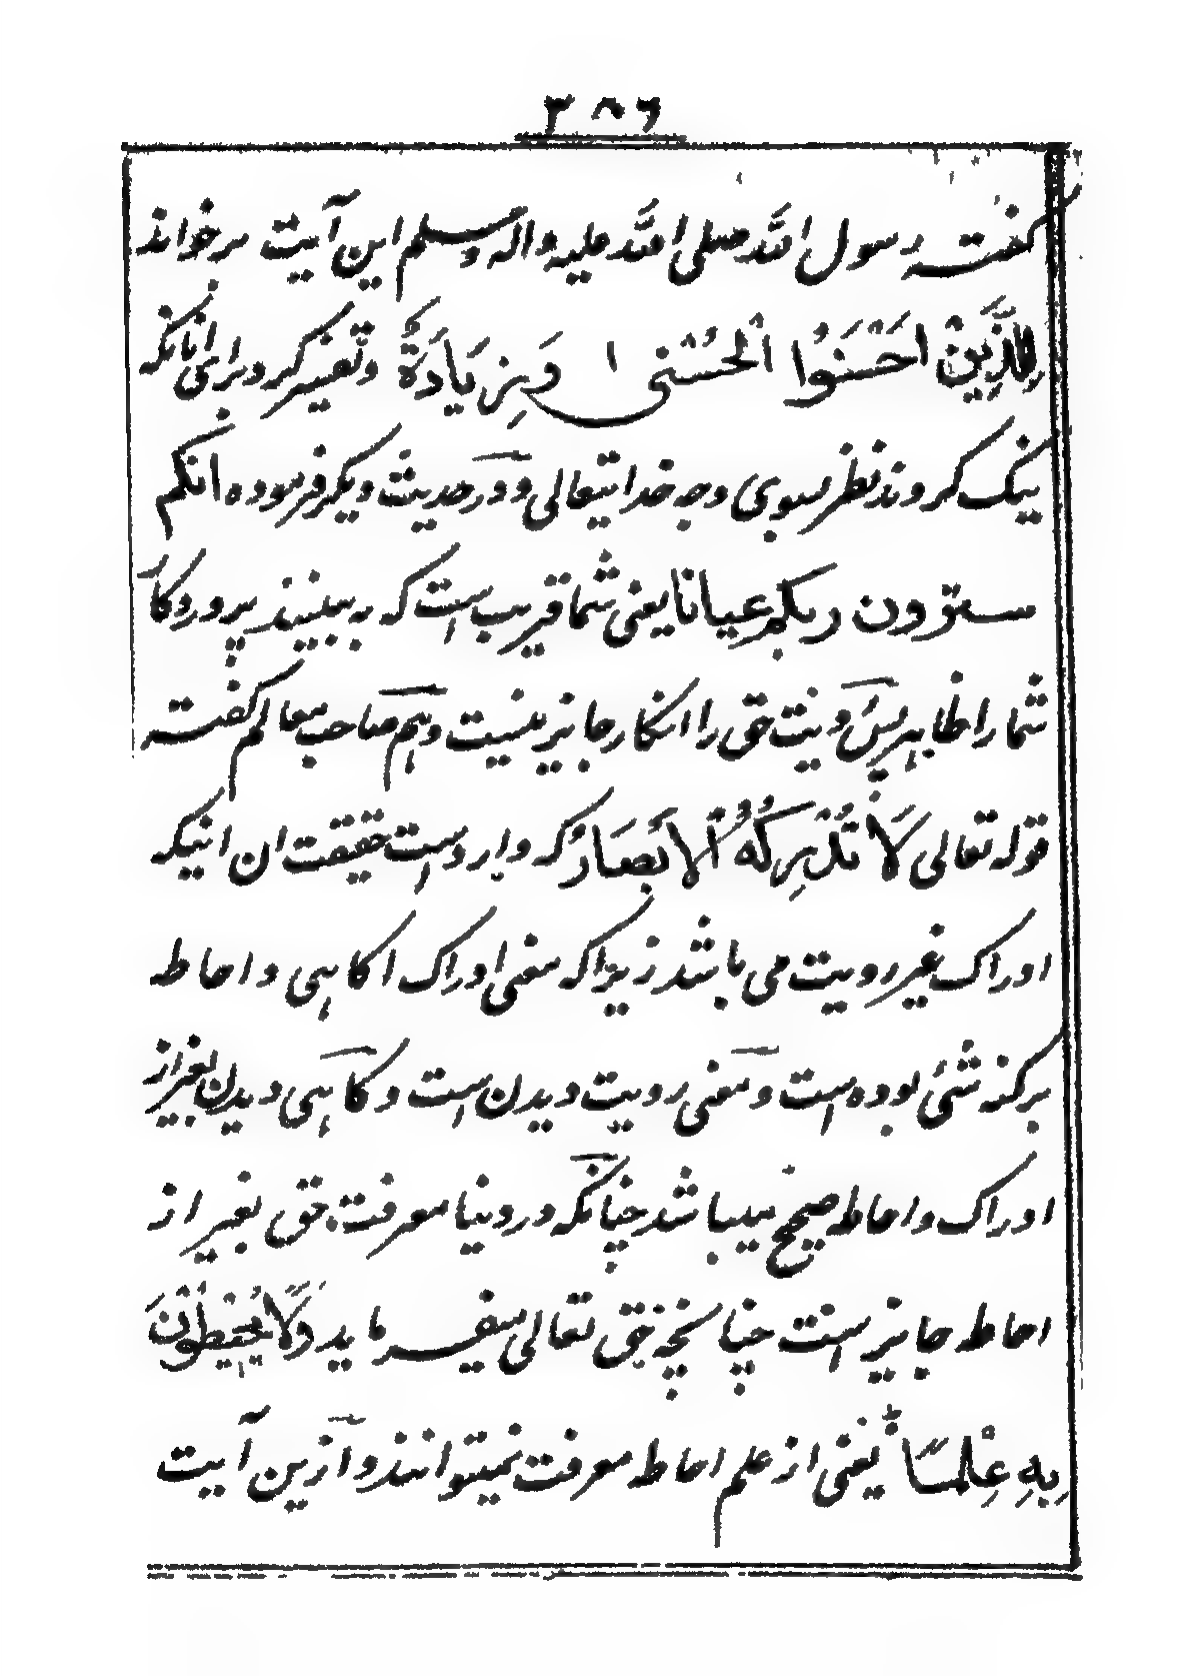 ۳۸۶
گفت رسول الله صلی الله علیه واله وسلم این آیت برخواند
لِلَّذِينَ اَحْسَنُوا الْحُسْنٰى وَزِيَادَةٌ وتفسیر کرد برای انانکه
نیک کردند نظر بسوی وجه خدایتعالی ودر حدیث دیگر فرموده انکم
سترون ربکم عیانا یعنی شما قریب است که به بینید پروردگار
شما را ظاهر پس رویت حق را انکار جایز نیست وهم صاحب معالم گفته
قوله تعالی لَا تُدْرِكُهُ الْاَبْصَارُ که وارد است حقیقت ان اینکه
ادراک غیر رویت می باشد زیراکه معنی ادراک اگاهی و احاطه
برکنه شئی بوده است و معنی رویت دیدن است و گاهی دیدن بغیر از
ادراک و احاطه صحیح میباشد چنانکه در دنیا معرفت حق بغیر از
احاطه جایز است چنانچه حق تعالی میفرماید وَلَا يُحِيطُونَ
بِهِ عِلْمًا یعنی از علم احاطه معرفت نمیتوانند و ازین آیت